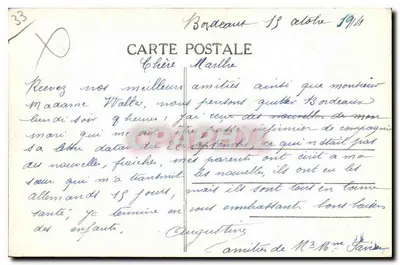 33
Bordeaux 15 octobre 1914
CARTE POSTALE
Chère Marthe
Recevez nos meilleurs amitiés ainsi que monsieur
Madame Walter, nous pensons quitter Bordeaux
lundi soir 9 heures, j'ai reçu des nouvelles de mon
mari qui infirmier de campagne
sa lettre datait du ce qui n'était pas
des nouvelles fraiche, mes parents ont écrit a ma
sœur qui m'a transmit les nouvelles, ils ont eu les
allemands 15 jours, mais ils sont tous en bonne
santé, je termine en vous embrassant bons baisers
des enfants. Augustine
amitiés de Mr Mme